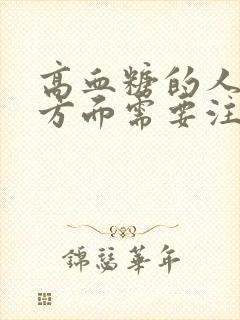 高血糖的人
方面需要注
錦瑟華年